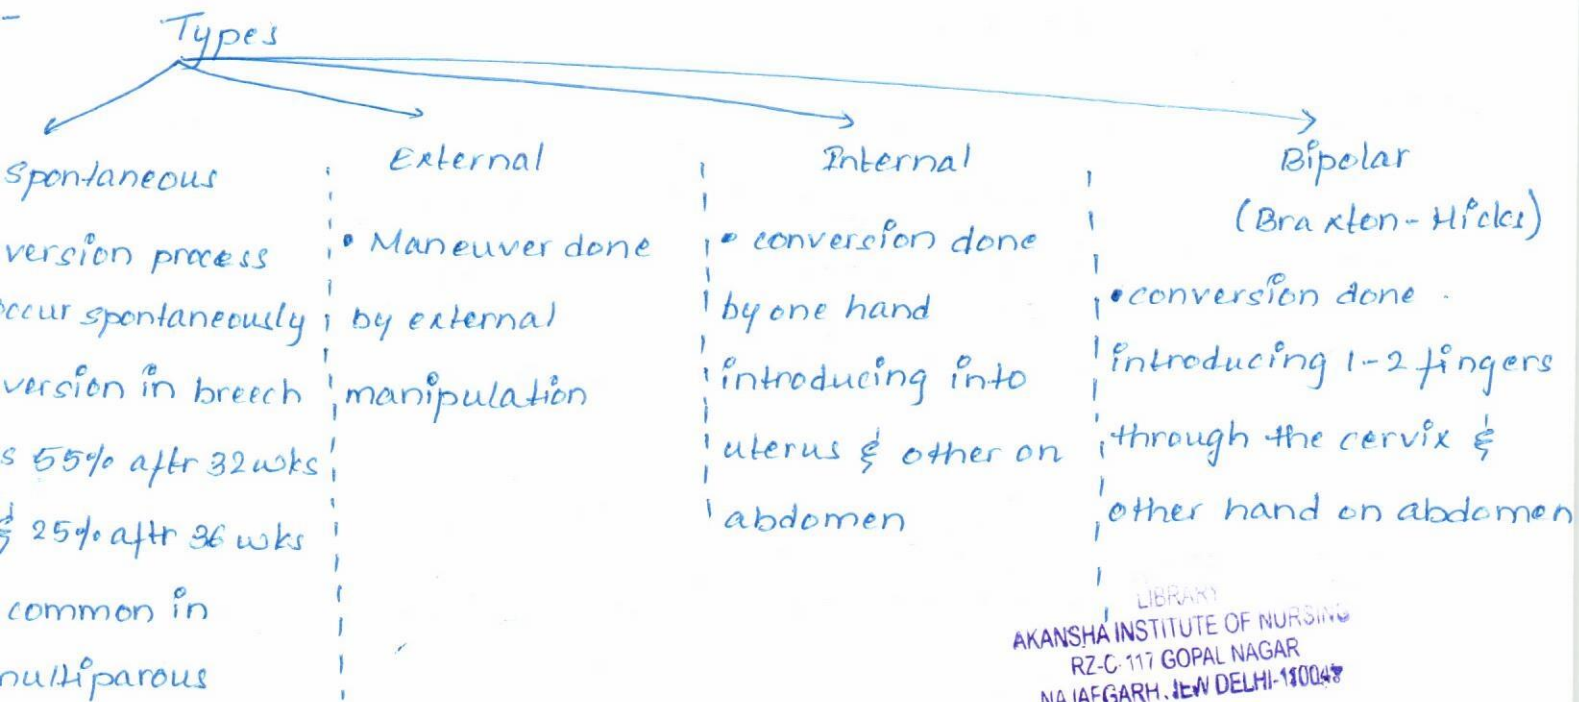 Types
Spontaneous
version process
occur spontaneously
version in breech
s 55% aftr 32 wks
& 25% aftr 36 wks
common in
multiparous
External
• Maneuver done
by external
manipulation
Internal
• conversion done
by one hand
introducing into
uterus & other on
abdomen
Bipolar
(Braxton-Hicks)
• conversion done
introducing 1-2 fingers
through the cervix &
other hand on abdomen
LIBRARY
AKANSHA INSTITUTE OF NURSING
RZ-C-117 GOPAL NAGAR
NAJAFGARH, NEW DELHI-110043